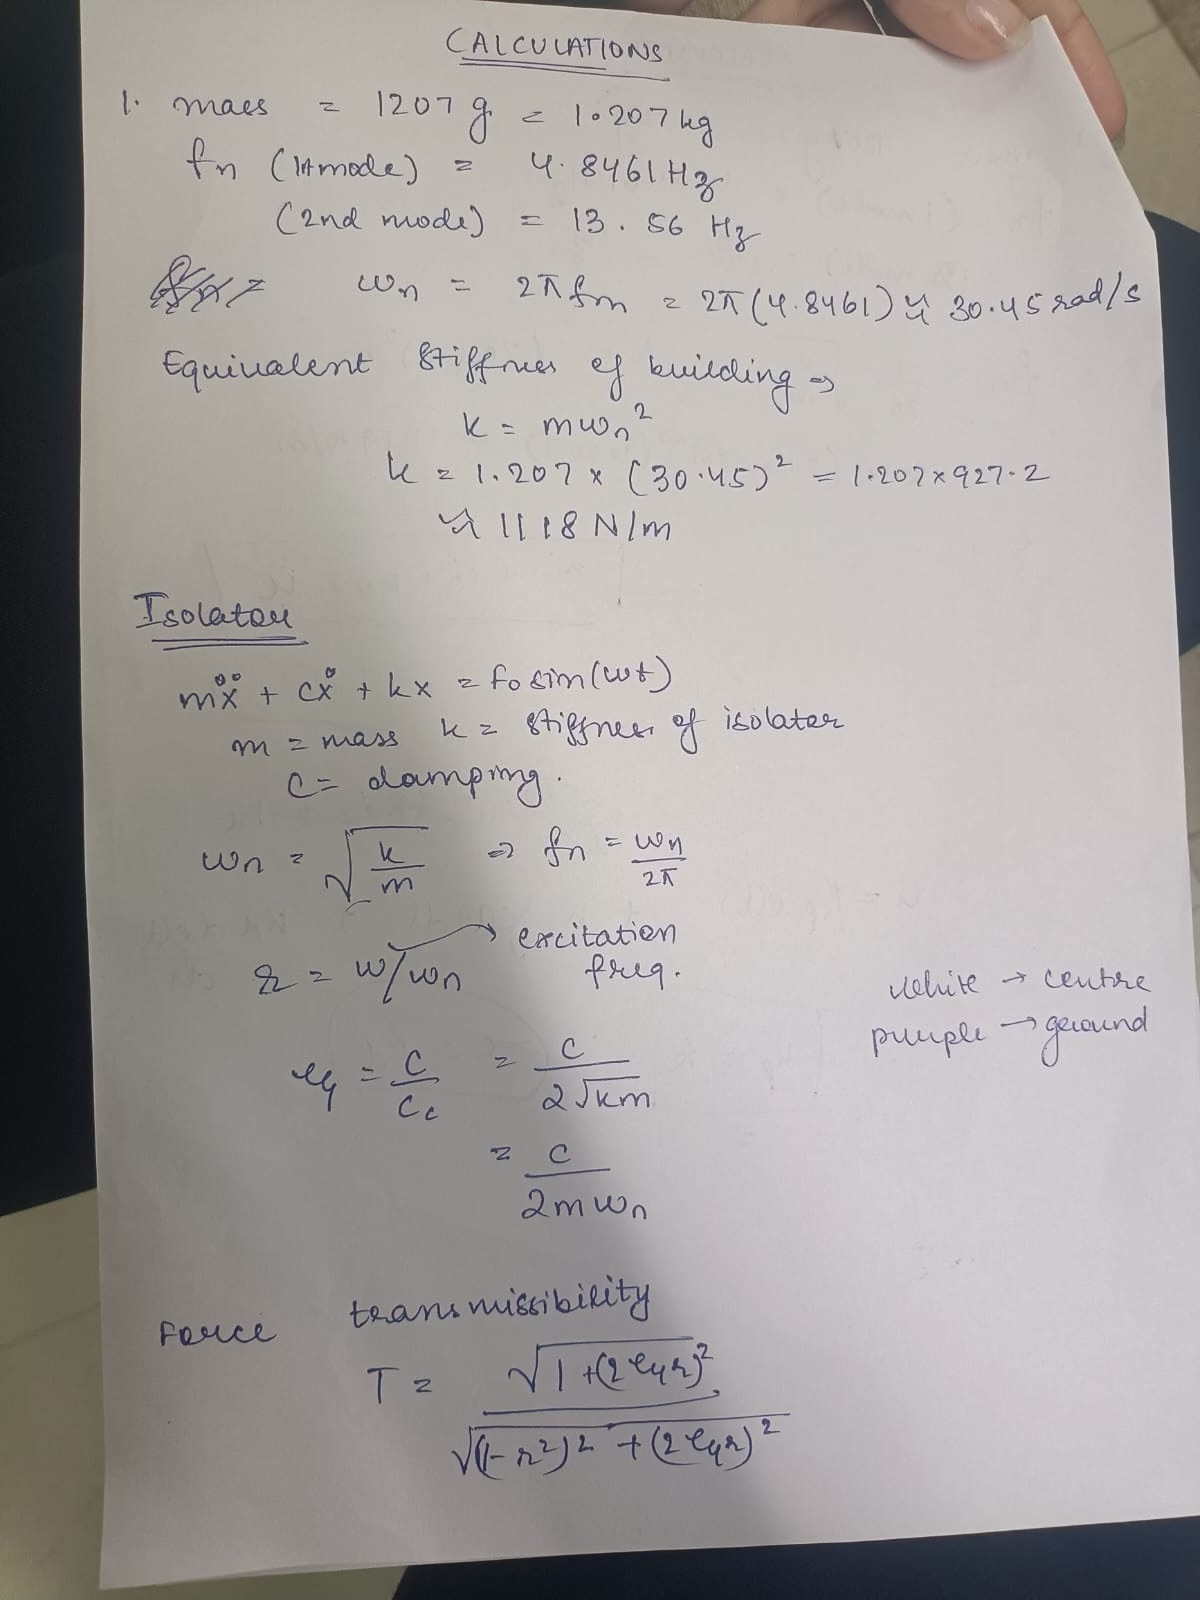 CALCULATIONS
1. mass = 1207 g = 1.207 kg
fn (1st mode) = 4.8461 Hz
(2nd mode) = 13.56 Hz
ωn = 2π fn = 2π (4.8461) ≈ 30.45 rad/s
Equivalent stiffness of building ⇒
k = mωn²
k = 1.207 × (30.45)² = 1.207 × 927.2
≈ 1118 N/m
Isolator
mẍ + cẋ + kx = f0 sin(ωt)
m = mass k = stiffness of isolator
c = damping.
ωn = √(k/m) ⇒ fn = ωn/2π
r = ω/ωn → excitation
freq.
white → centre
purple → ground
ξ = c/Cc = c/2√km
= c/2mωn
Force transmissibility
T = √1+(2ξr)² / √(1-r²)² + (2ξr)²